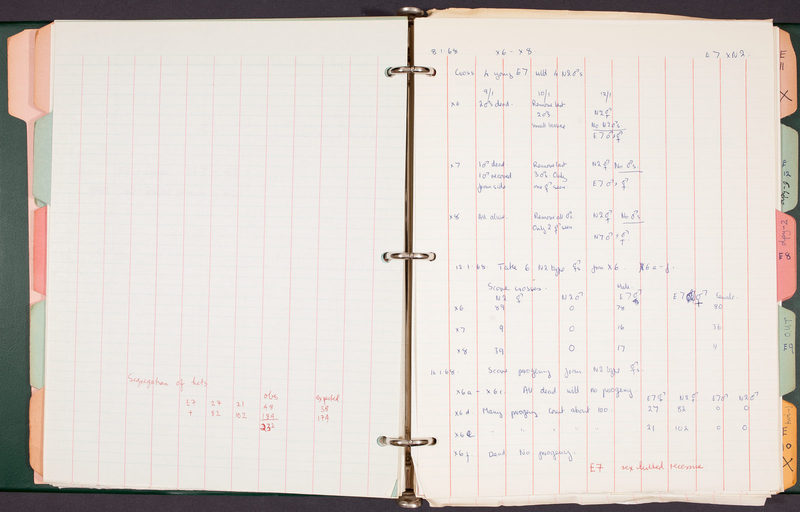 Segregation of hets
obs expected
E7 27 21 48 58
+ 82 102 184 174
232
8.1.68. x6 - x8 E7 x N2.
Cross 4 young E7 with 4 N2 ♂s
9/1 10/1 12/1
x6 2♂s dead. Remove last N2 ⚥
2♂s No N2♂s
small losses E7 ♂ + ⚥
x7 1♂ dead Remove last N2 ⚥ No ♂s
1♂ removed 3♂s Only E7 ♂ + ⚥
from side seen
x8 All alive. Remove all ♂s N2 ⚥ No ♂s
Only 2 seen N7 ♂ + ⚥
12.1.68 Take 6 N2 type ⚥s from x6. x6a-f.
Score crosses. Male
N2 ⚥ N2♂ E7 E7 Female.
x6 89 0 78 80
x7 9 0 16 36
x8 39 0 17 4
16.1.68. Score progeny from N2 type ⚥s.
x6a - x6c. All dead with no progeny.
E7⚥ N2⚥ E7♂ N2♂
x6d Many progeny Count about 100. 27 82 0 0
x6e " " " " " 21 102 0 0
x6f. Dead No progeny.
E7 sex linked recessive
E
11
X
E
12
dpy-2
E8
OUT
E9
E
10
X